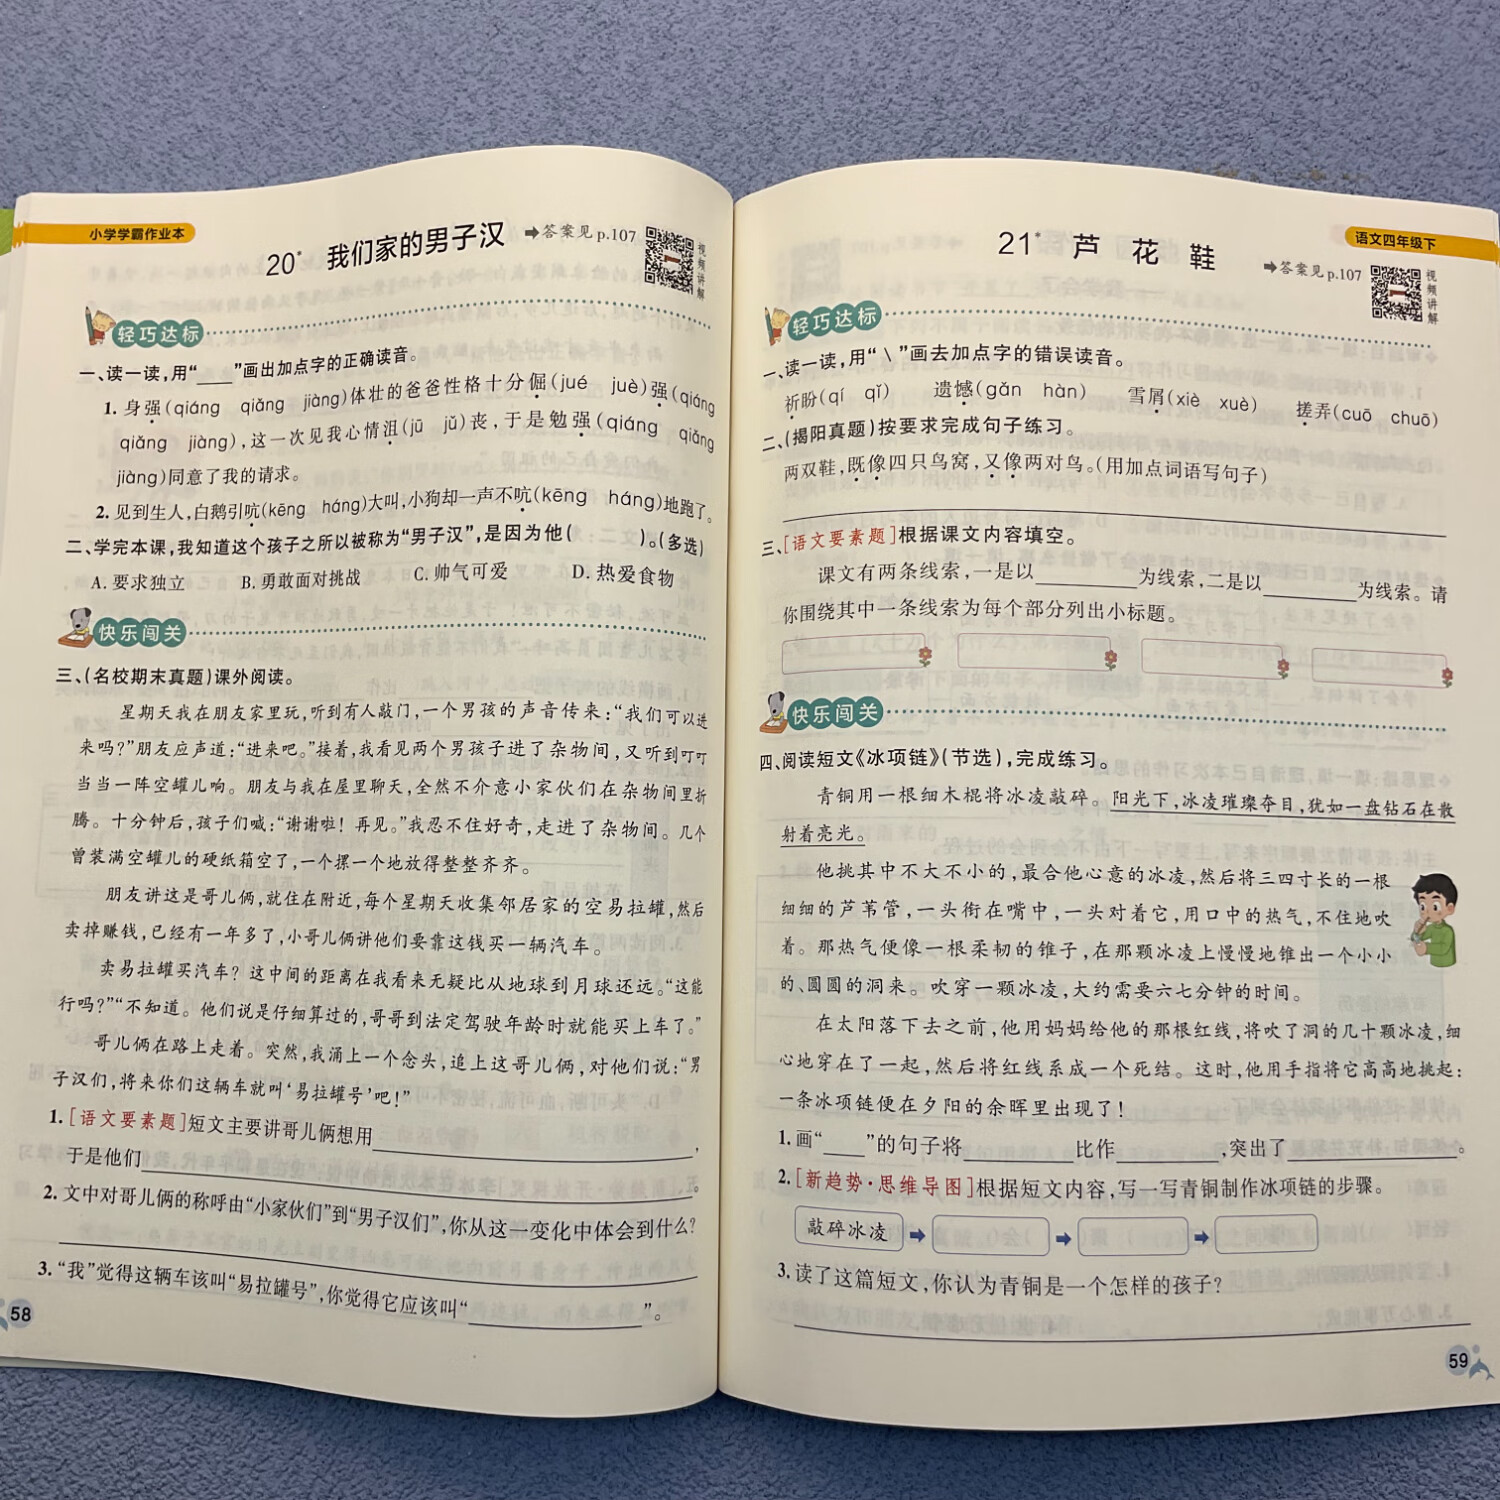 小学学霸作业本
20* 我们家的男子汉 ➡答案见p.107
视频讲解
轻巧达标
一、读一读,用“____”画出加点字的正确读音。
1. 身强(qiáng qiǎng jiàng)体壮的爸爸性格十分倔(jué juè)强(qiáng
qiǎng jiàng),这一次见我心情沮(jū jǔ)丧,于是勉强(qiáng qiǎng
jiàng)同意了我的请求。
2. 见到生人,白鹅引吭(kēng háng)大叫,小狗却一声不吭(kēng háng)地跑了。
二、学完本课,我知道这个孩子之所以被称为“男子汉”,是因为他( )。(多选)
A. 要求独立 B. 勇敢面对挑战 C. 帅气可爱 D. 热爱食物
快乐闯关
三、(名校期末真题)课外阅读。
星期天我在朋友家里玩,听到有人敲门,一个男孩的声音传来:“我们可以进
来吗?”朋友应声道:“进来吧。”接着,我看见两个男孩子进了杂物间,又听到叮叮
当当一阵空罐儿响。朋友与我在屋里聊天,全然不介意小家伙们在杂物间里折
腾。十分钟后,孩子们喊:“谢谢啦!再见。”我忍不住好奇,走进了杂物间。几个
曾装满空罐儿的硬纸箱空了,一个摞一个地放得整整齐齐。
朋友讲这是哥儿俩,就住在附近,每个星期天收集邻居家的空易拉罐,然后
卖掉赚钱,已经有一年多了,小哥儿俩讲他们要靠这钱买一辆汽车。
卖易拉罐买汽车?这中间的距离在我看来无疑比从地球到月球还远。“这能
行吗?”“不知道。他们说是仔细算过的,哥哥到法定驾驶年龄时就能买上车了。”
哥儿俩在路上走着。突然,我涌上一个念头,追上这哥儿俩,对他们说:“男
子汉们,将来你们这辆车就叫‘易拉罐号’吧!”
1. [语文要素题]短文主要讲哥儿俩想用____,
于是他们____。
2. 文中对哥儿俩的称呼由“小家伙们”到“男子汉们”,你从这一变化中体会到什么?
3. “我”觉得这辆车该叫“易拉罐号”,你觉得它应该叫“____”。
58
语文四年级下
21* 芦花鞋 ➡答案见p.107
视频讲解
轻巧达标
一、读一读,用“\”画去加点字的错误读音。
祈盼(qí qǐ) 遗憾(gǎn hàn) 雪屑(xiè xuè) 搓弄(cuō chuō)
二、(揭阳真题)按要求完成句子练习。
两双鞋,既像四只鸟窝,又像两对鸟。(用加点词语写句子)
三、[语文要素题]根据课文内容填空。
课文有两条线索,一是以____为线索,二是以____为线索。请
你围绕其中一条线索为每个部分列出小标题。
快乐闯关
四、阅读短文《冰项链》(节选),完成练习。
青铜用一根细木棍将冰凌敲碎。阳光下,冰凌璀璨夺目,犹如一盘钻石在散
射着亮光。
他挑其中不大不小的,最合他心意的冰凌,然后将三四寸长的一根
细细的芦苇管,一头衔在嘴中,一头对着它,用口中的热气,不住地吹
着。那热气便像一根柔韧的锥子,在那颗冰凌上慢慢地锥出一个小小
的、圆圆的洞来。吹穿一颗冰凌,大约需要六七分钟的时间。
在太阳落下去之前,他用妈妈给他的那根红线,将吹了洞的几十颗冰凌,细
心地穿在了一起,然后将红线系成一个死结。这时,他用手指将它高高地挑起:
一条冰项链便在夕阳的余晖里出现了!
1. 画“____”的句子将____比作____,突出了____。
2. [新趋势·思维导图]根据短文内容,写一写青铜制作冰项链的步骤。
敲碎冰凌 ➡ ➡ ➡
3. 读了这篇短文,你认为青铜是一个怎样的孩子?
59